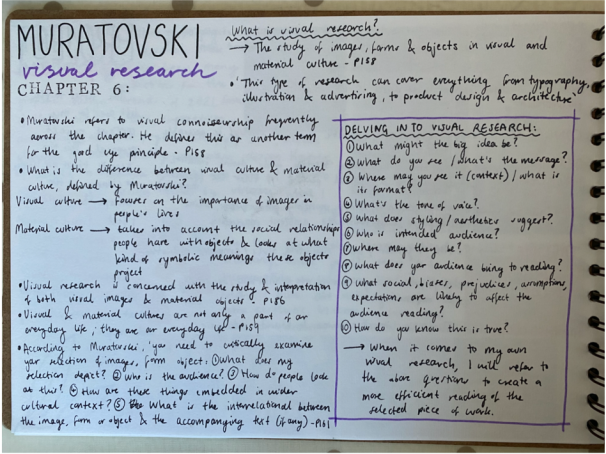 MURATOVSKI
visual research
CHAPTER 6:
What is visual research?
→ The study of images, forms & objects in visual and
material culture - P158
• 'This type of research can cover everything from typography,
illustration & advertising, to product design & architecture'
• Muratovski refers to visual connoisseurship frequently
across the chapter. He defines this as another term
for the good eye principle - P158
• What is the difference between visual culture & material
culture, defined by Muratovski?
Visual culture → focuses on the importance of images in
people's lives
Material culture → takes into account the social relationships
people have with objects & looks at what
kind of symbolic meanings these objects
project
• Visual research is concerned with the study & interpretation
of both visual images & material objects P156
• Visual & material cultures are not only a part of an
everyday life; they are an everyday life - P159
• According to Muratovski, 'you need to critically examine
your selection of images, form object: ① What does my
selection depict? ② Who is the audience? ③ How do people look
at this? ④ How are these things embedded in wider
cultural context? ⑤ What is the interrelational between
the image, form or object & the accompanying text (if any) - P161
DELVING IN TO VISUAL RESEARCH:
① What might the big idea be?
② What do you see / what's the message?
③ Where may you see it (context) / what is
its format?
④ What's the tone of voice?
⑤ What does styling / aesthetics suggest?
⑥ Who is intended audience?
⑦ Where may they be?
⑧ What does your audience bring to reading?
⑨ What social, biases, prejudices, assumptions,
expectations are likely to affect the
audience reading?
⑩ How do you know this is true?
→ When it comes to my own
visual research, I will refer to
the above questions to create a
more efficient reading of the
selected piece of work.